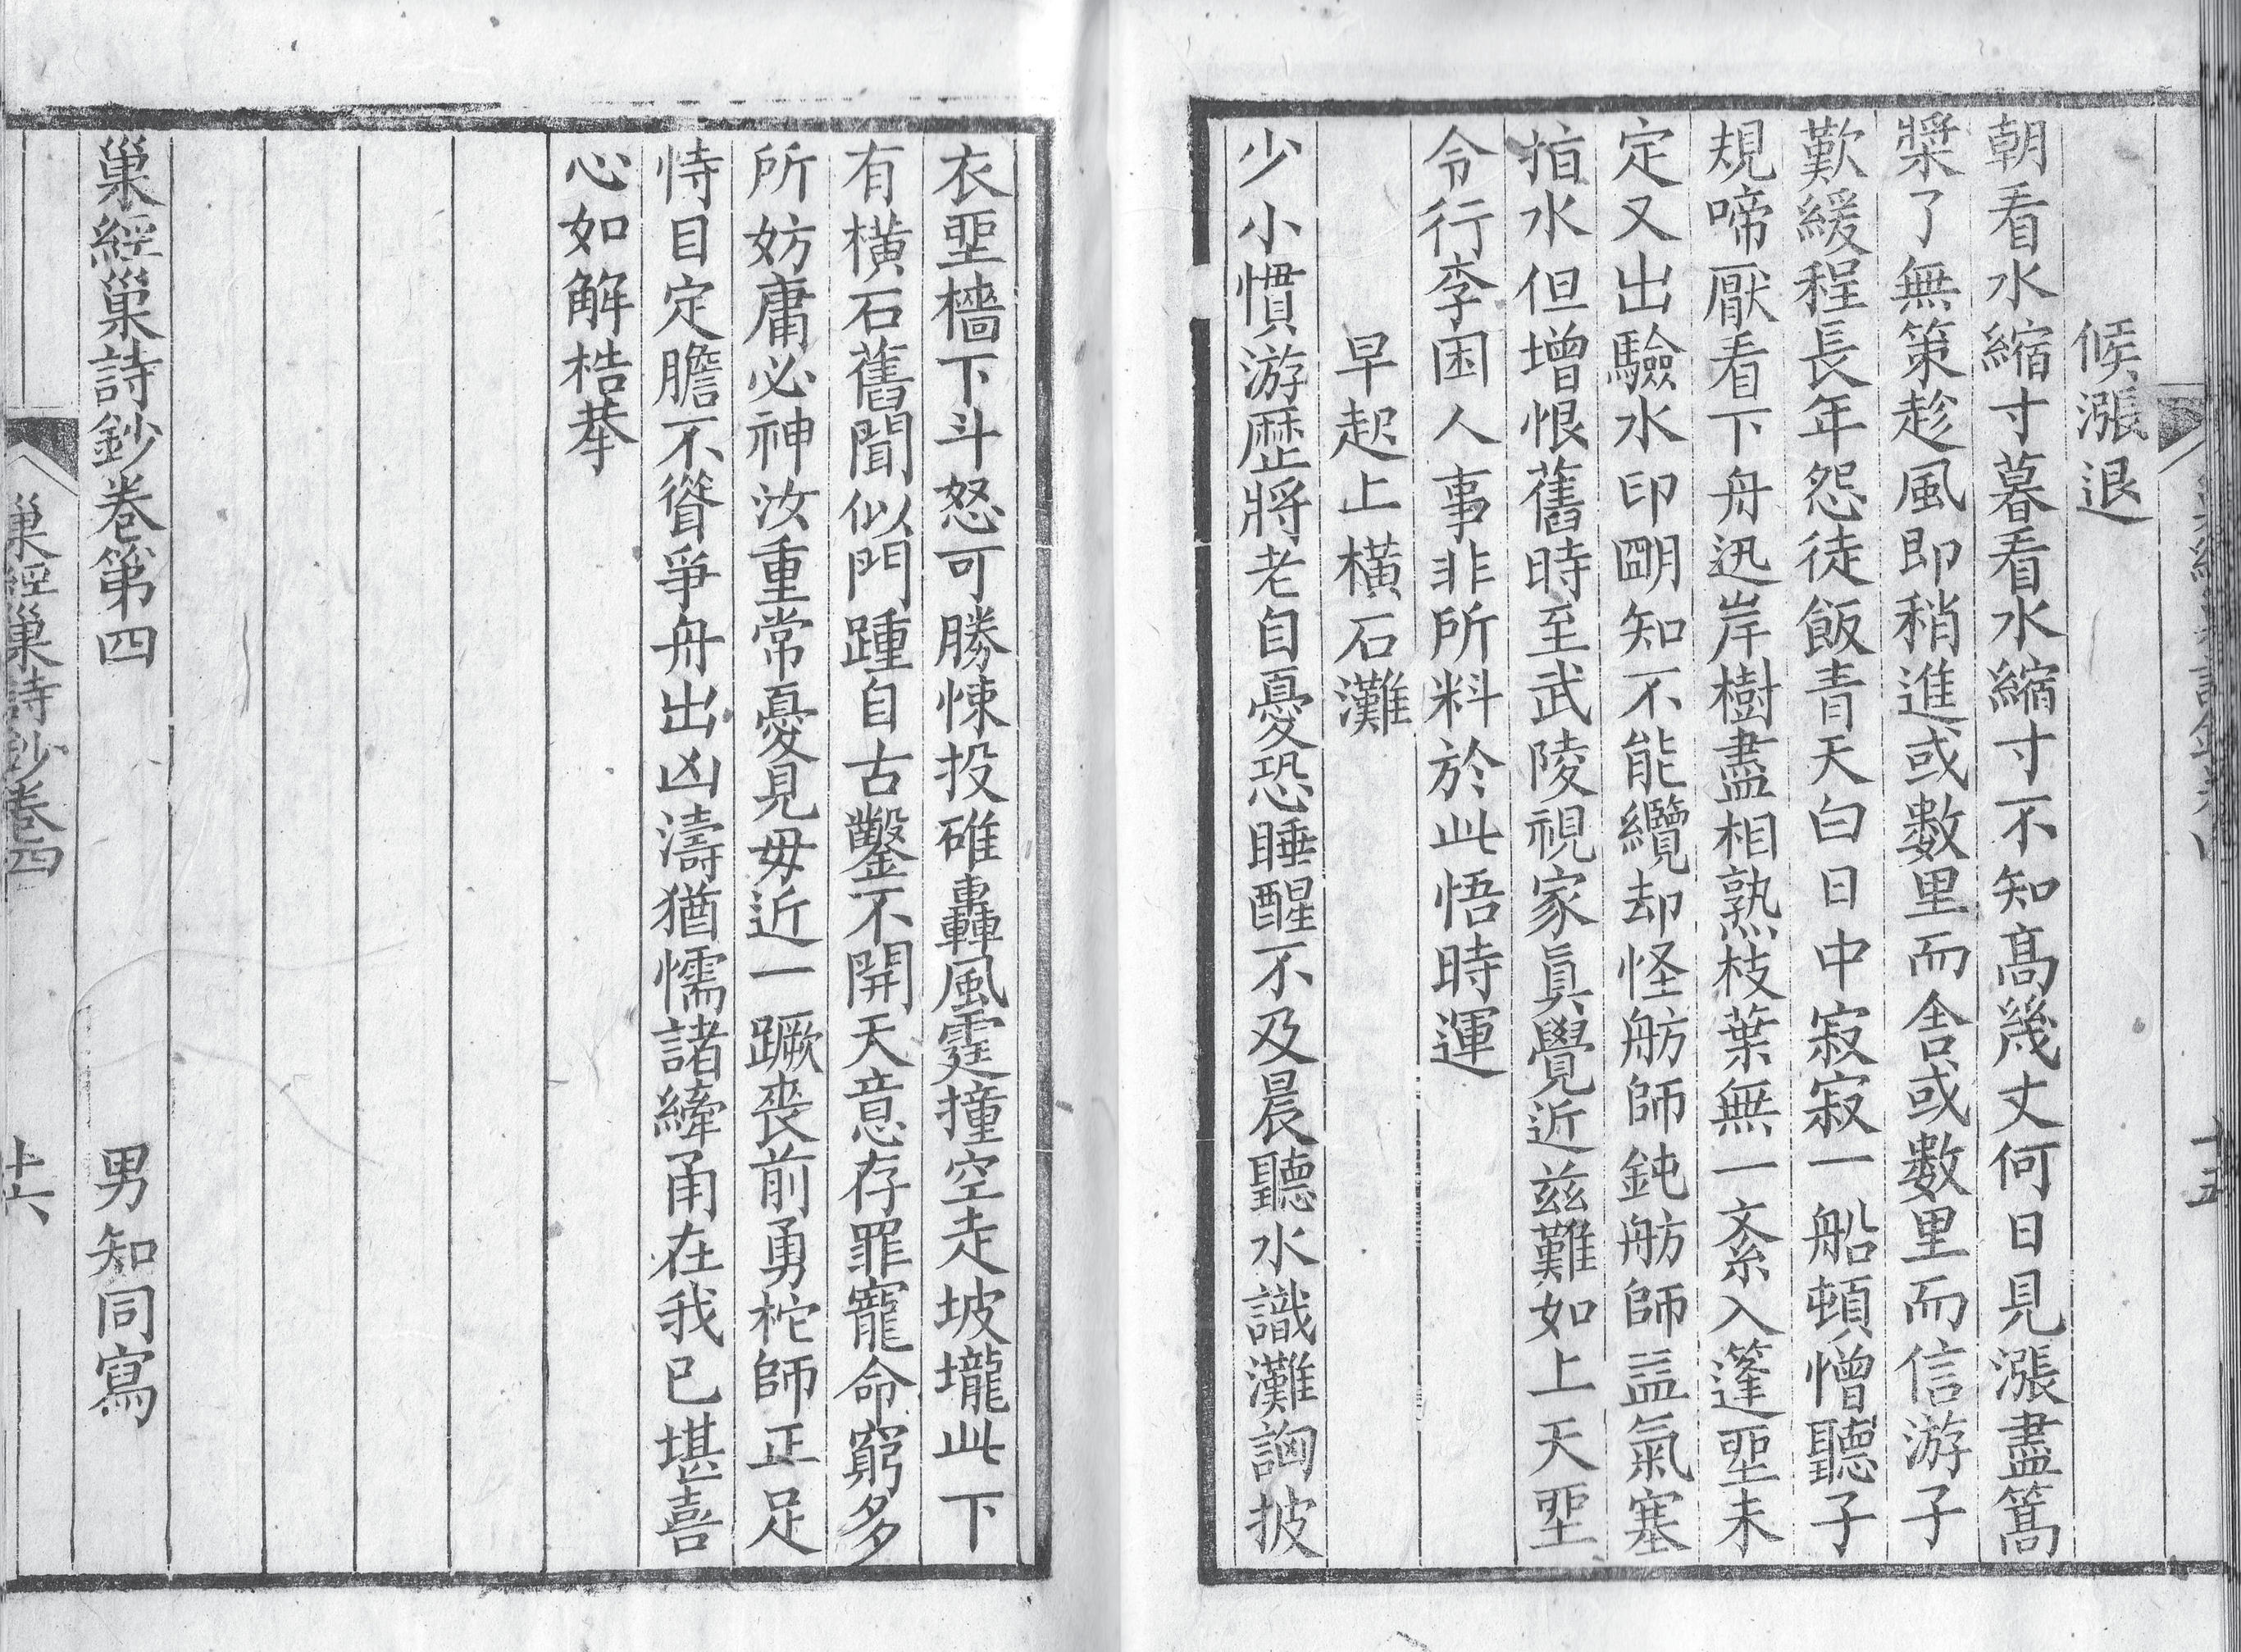 候漲退
朝看水縮寸暮看水縮寸不知高幾丈何日見漲盡篙
槳了無策趁風即稍進或數里而舎或數里而信游子
歎緩程長年怨徒飯青天白日中寂寂一船頓憎聽子
規啼厭看下舟迅岸樹盡相熟枝葉無一紊入篷坐未
定又出驗水印朙知不能纜却怪舫師鈍舫師益氣塞
指水但增恨舊時至武陵視家眞覺近茲難如上天坐
令行李困人事非所料於此悟時運
早起上橫石灘
少小慣游歷將老自憂恐睡醒不及晨聽水識灘詾披
衣坐檣下斗怒可勝悚投碓轟風霆撞空走坡壠此下
有橫石舊聞似門踵自古鑿不開天意存罪寵命窮多
所妨庸必神汝重常憂見毋近一蹶喪前勇柁師正足
恃目定膽不聳爭舟出凶濤猶懦諸縴甬在我已堪喜
心如解梏拲
巢經巢詩鈔卷第四
男知同寫
巢經巢詩鈔卷四
十六
十五